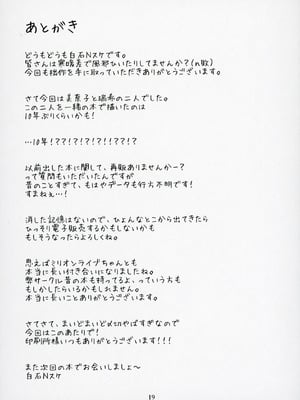 あとがき
どうもどうも白石Nスケです。
皆さんは寒暖差で風邪ひいたりしてませんか？(n敗)
今回も拙作を手に取っていただきありがとうございます。
さて今回は美奈子と瑞希の二人でした。
この二人を一緒の本で描いたのは
10年ぶりくらいかも！
…10年！？？！？！？！？？！？！？
以前出した本に関して、再販ありませんかー？
って質問もいただいたんですが
昔のことすぎて、もはやデータも行方不明です！
すまねぇ…！
消した記憶はないので、ひょんなとこから出てきたら
ひっそり電子販売するかもしないかも
もしそうなったらよろしくね。
思えばミリオンライブちゃんとも
本当に長い付き合いになりましたね。
弊サークル昔の本も持ってるよ、っていう方も
もしかしたらいるかもしれません。
本当に長いことありがとうございます。
さてさて、まいどまいど〆切やばすぎなので
今回はこのあたりで！
印刷所様いつもありがとうございます！！！
また次回の本でお会いしましょ～
白石Nスケ
19